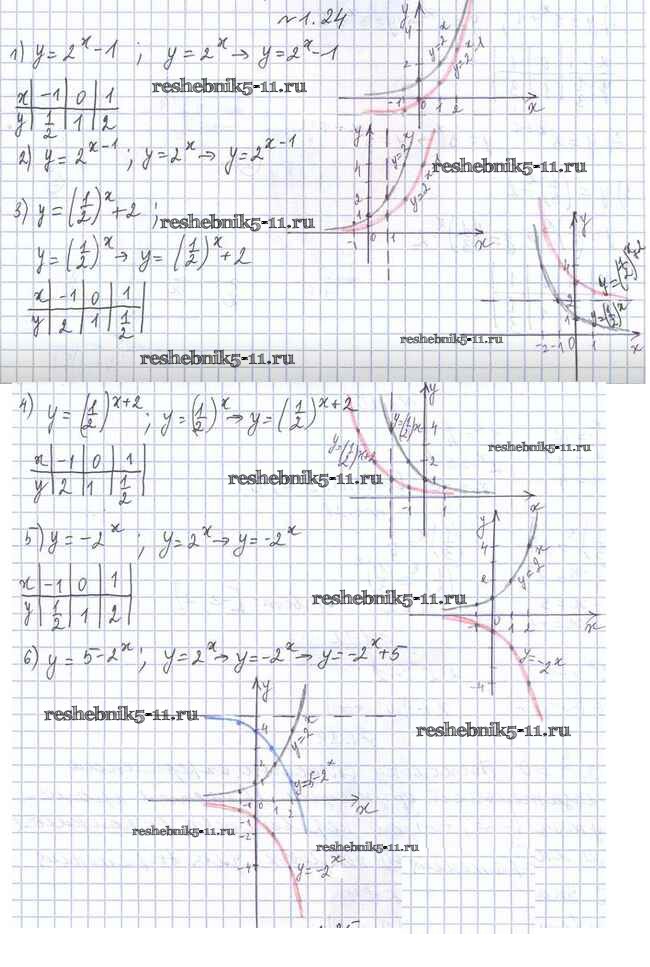 №1.24
1) y=2^x-1 ; y=2^x → y=2^x-1
y=2^x
y=2^x-1
reshebnik5-11.ru
x | -1 | 0 | 1
y | 1/2 | 1 | 2
2) y=2^(x-1) ; y=2^x → y=2^(x-1)
y=2^x
reshebnik5-11.ru
3) y=(1/2)^x+2 ;
reshebnik5-11.ru
y=(1/2)^x → y=(1/2)^x+2
y=(1/2)^x+2
y=(1/2)^x
x | -1 | 0 | 1
y | 2 | 1 | 1/2
reshebnik5-11.ru
reshebnik5-11.ru
4) y=(1/2)^(x+2) ; y=(1/2)^x → y=(1/2)^(x+2)
y=(1/2)^x
y=(1/2)^(x+2)
reshebnik5-11.ru
x | -1 | 0 | 1
y | 2 | 1 | 1/2
reshebnik5-11.ru
5) y=-2^x ; y=2^x → y=-2^x
y=2^x
x | -1 | 0 | 1
y | 1/2 | 1 | 2
reshebnik5-11.ru
y=-2^x
6) y=5-2^x ; y=2^x → y=-2^x → y=-2^x+5
reshebnik5-11.ru
reshebnik5-11.ru
y=2^x
y=5-2^x
reshebnik5-11.ru
reshebnik5-11.ru
y=-2^x